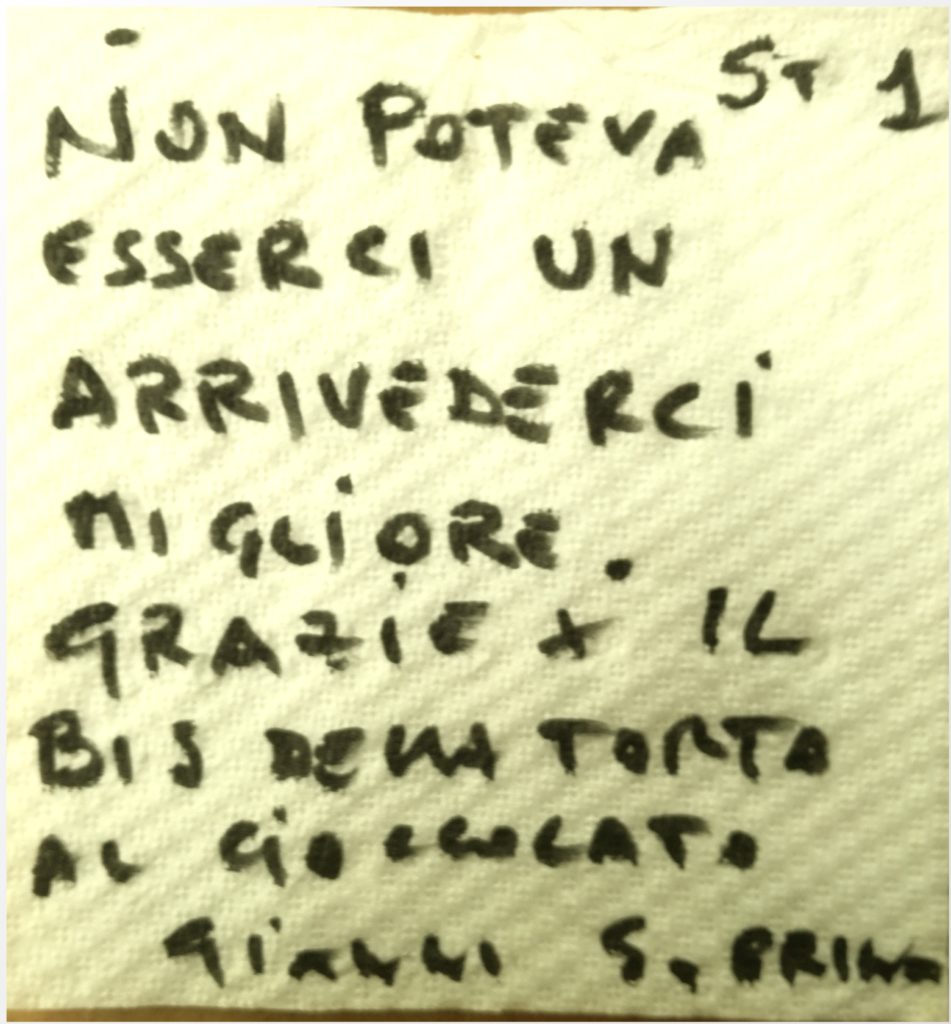 NON POTEVA ST 1
ESSERCI UN
ARRIVEDERCI
MIGLIORE.
GRAZIE X IL
BIS DELLA TORTA
AL CIOCCOLATO
GIANNI S.